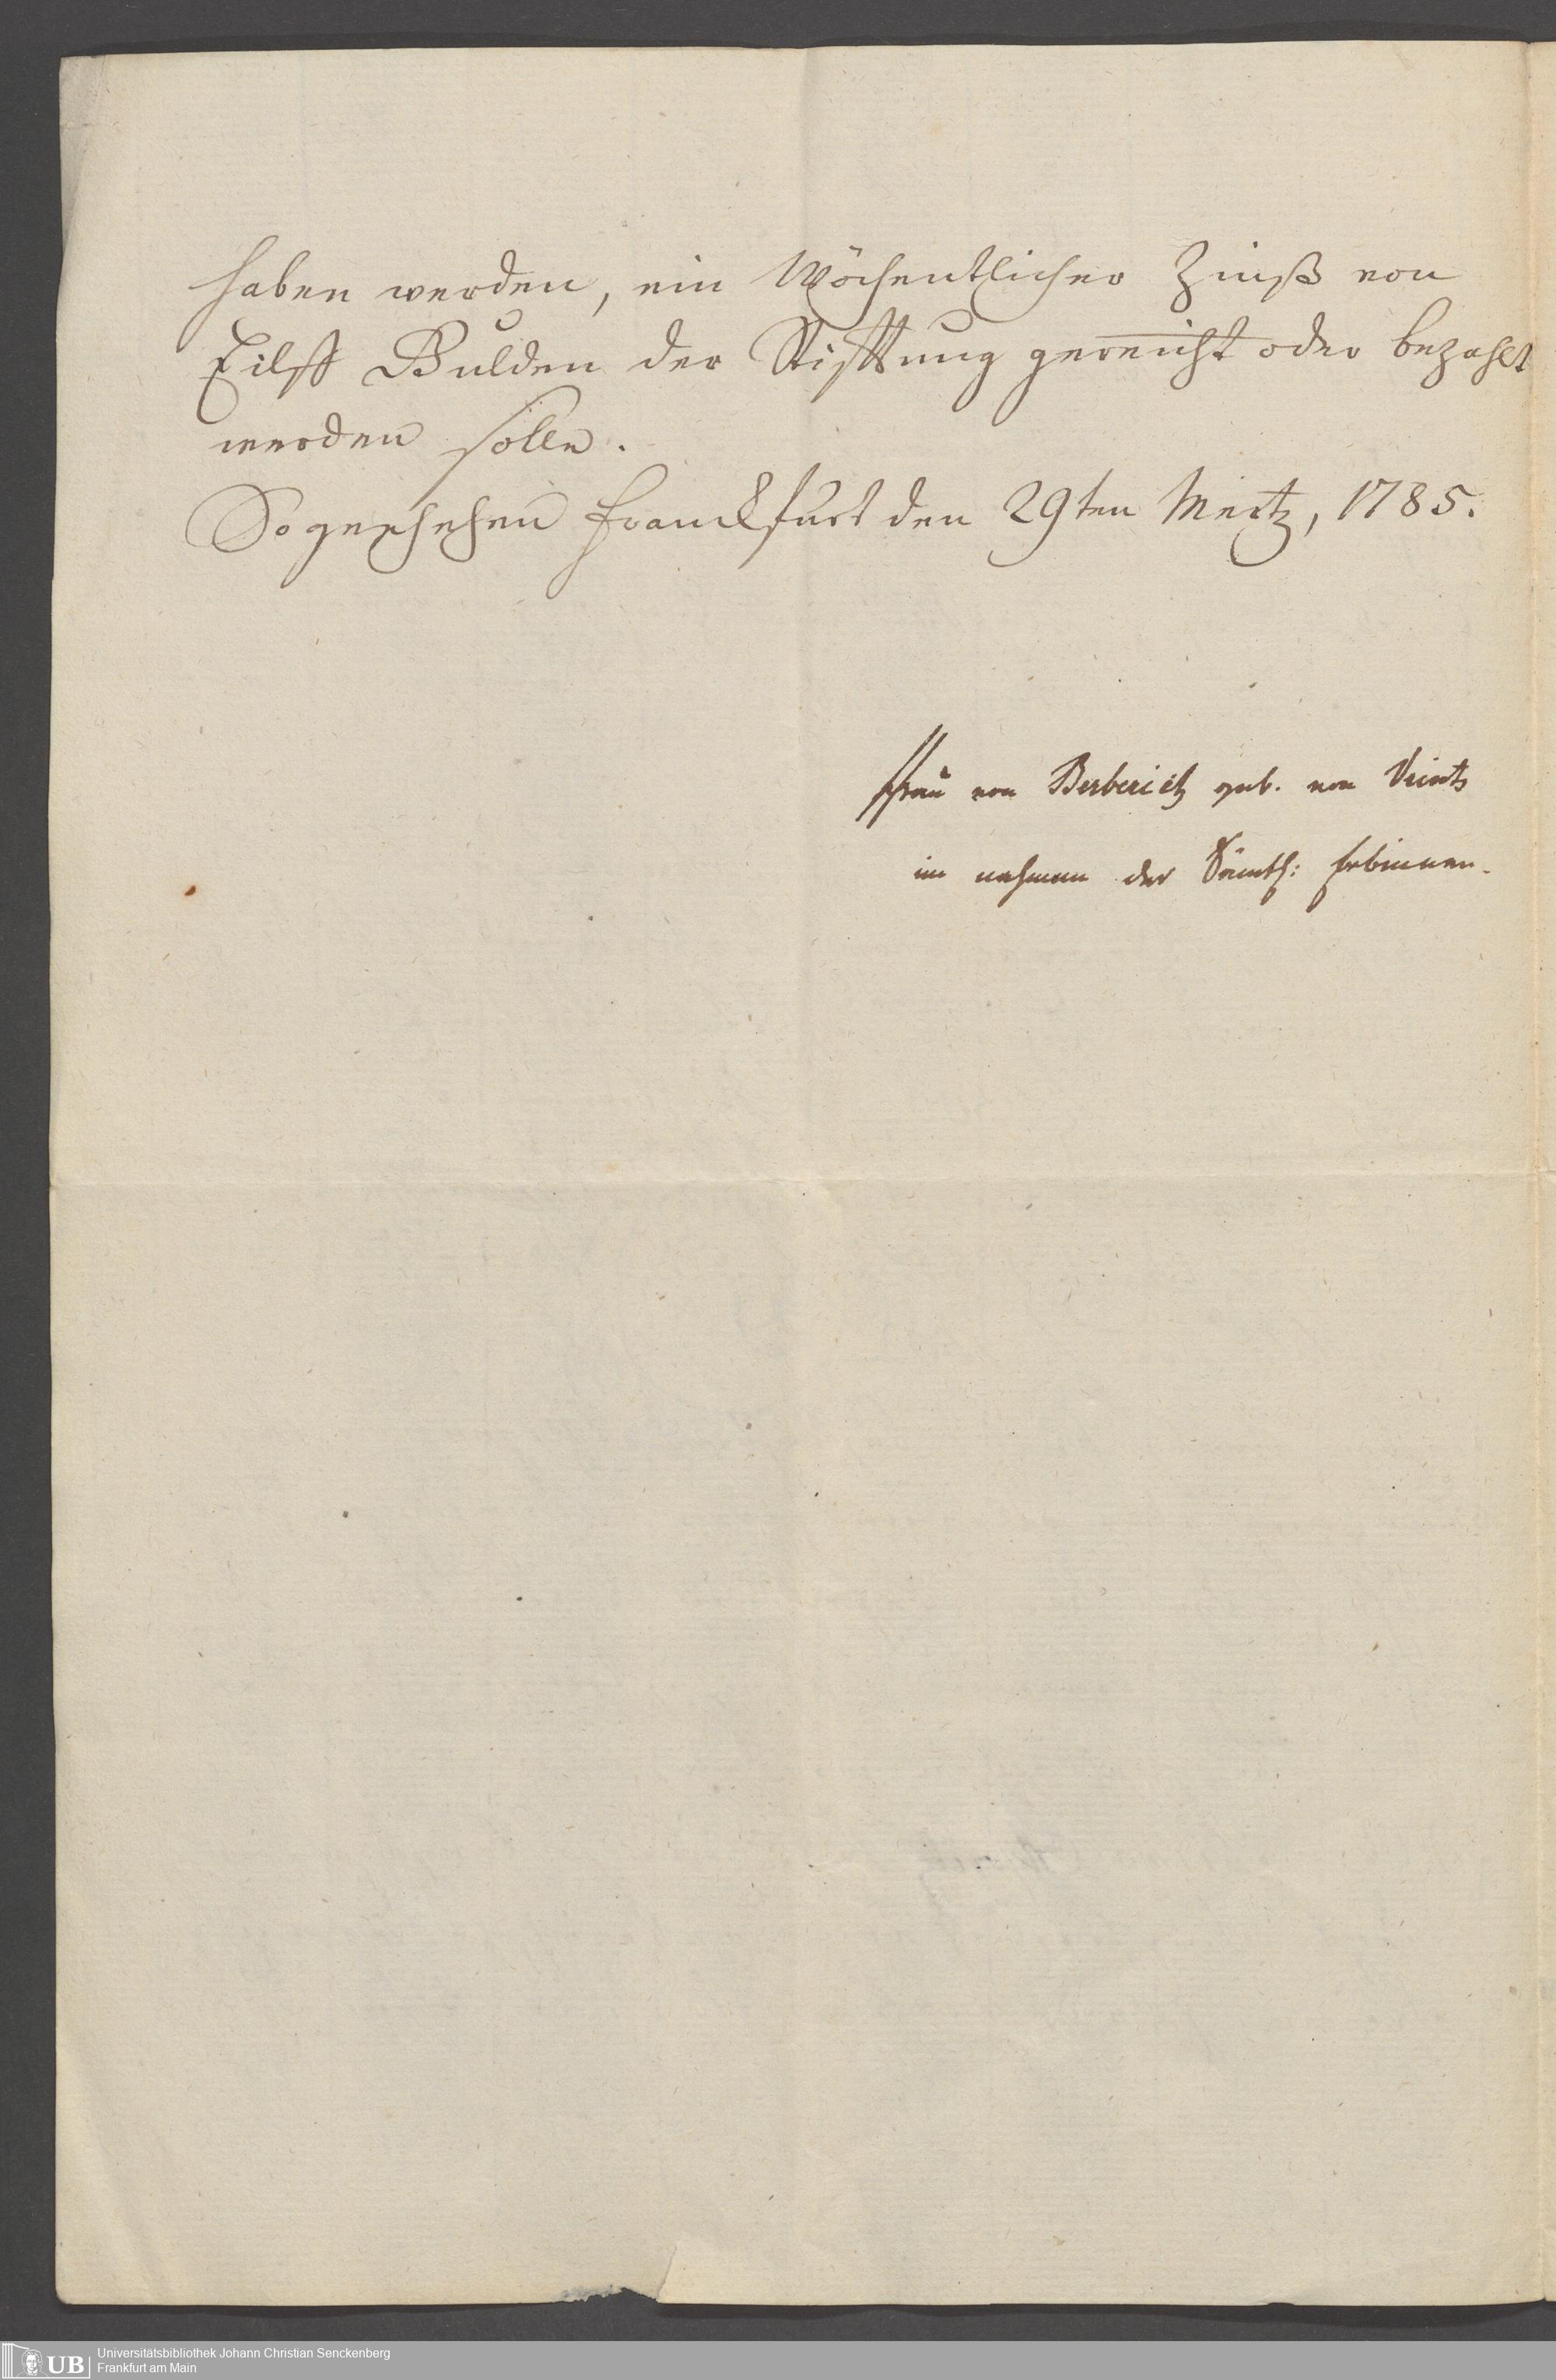 haben werden, ein Wöchentlicher Zinß von
Eilff Gulden der Stifftung gereicht oder bezahlt
werden solle.
So geschehen Franckfurt den 29ten Mertz, 1785.
Frau von Berberich geb. von Vrints
im nahmen der Sämtl: Erbinnen.
UB
Universitätsbibliothek Johann Christian Senckenberg
Frankfurt am Main